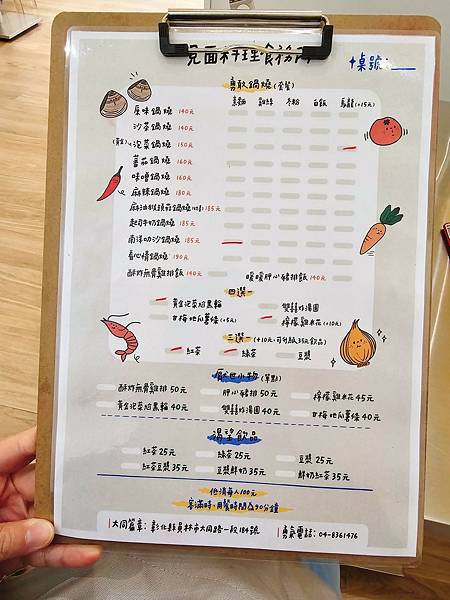 見面料理食務所
+桌號:
勇敢鍋燒(套餐)
意麵 雞絲 冬粉 白飯 烏龍(+15元)
原味鍋燒 140元
沙茶鍋燒 140元
泡菜鍋燒 150元
蕃茄鍋燒 160元
味噌鍋燒 160元
麻辣鍋燒 180元
麻油猴頭菇鍋燒 185元
起司牛奶鍋燒 185元
南洋叻沙鍋燒 185元
看心情鍋燒 190元
酥炸無骨雞排飯 140元 暖暖胖心豬排飯 140元
四選一
黃金泡菜燴黑輪 雙囍炸湯圓
甘梅地瓜薯條(+5元) 檸檬雞米花(+10元)
三選一(+10元,可升級35元飲品)
紅茶 綠茶 豆漿
厭世小物(單點)
酥炸無骨雞排 50元 胖心豬排 50元 檸檬雞米花 45元
黃金泡菜燴黑輪 40元 雙囍炸湯圓 40元 甘梅地瓜薯條 40元
渴望飲品
紅茶 25元 綠茶 25元 豆漿 25元
紅茶豆漿 35元 豆漿鮮奶 35元 鮮奶紅茶 35元
低消每人100元
客滿時,用餐時間為90分鐘
大同篇章:彰化縣員林市大同路一段184號 勇氣電話:04-8361476